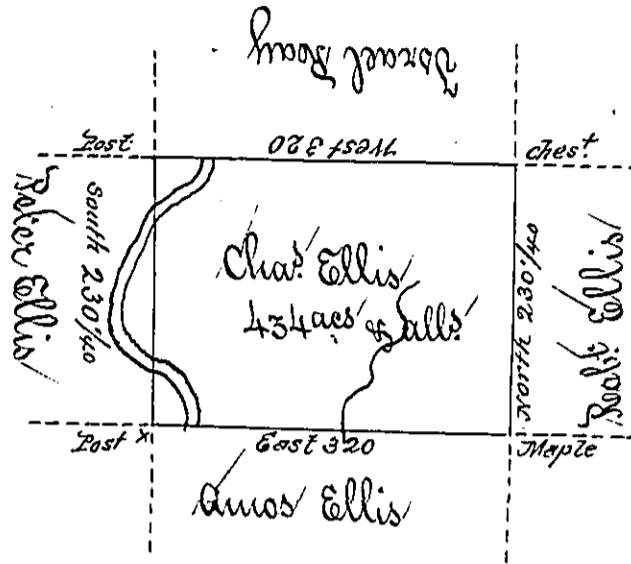 Israel Ray
Post
West 320
Chest.
Peter Ellis
South 230 1/40
Chas. Ellis
434 acs & alls.
North 230 1/40
Robt. Ellis
Post
x
East 320
Maple
Amos Ellis